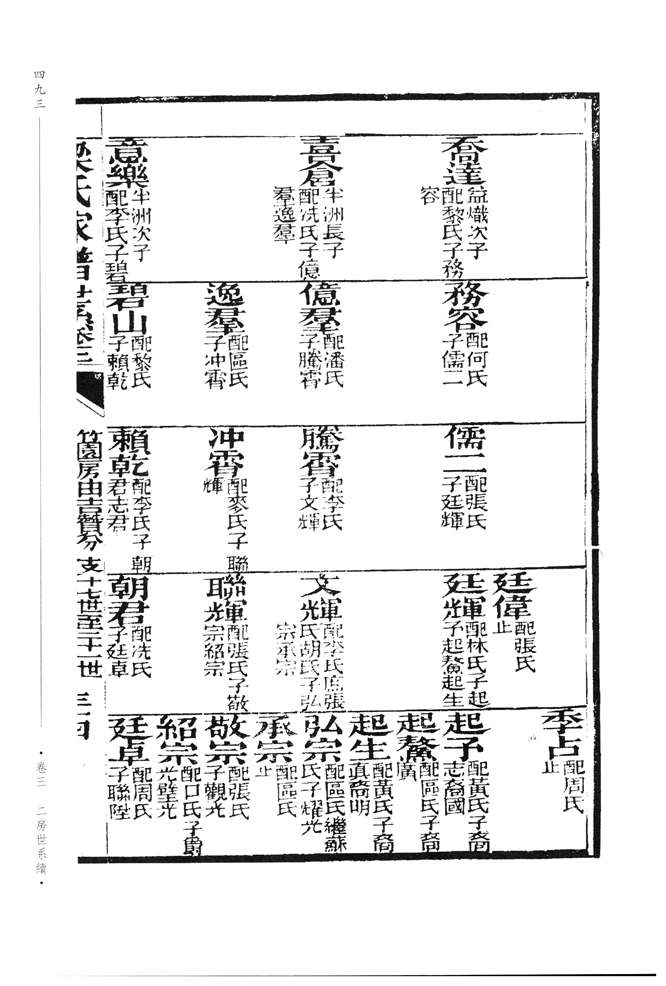 喬達
益熾次子
配黎氏子務
容
喜倉
半洲長子
配冼氏子億
羣逸羣
意樂
半洲次子
配李氏子碧
務容
配何氏
子儒二
億羣
配潘氏
子騰霄
逸羣
配區氏
子冲霄
碧山
配黎氏
子賴乾
儒二
配張氏
子廷輝
騰霄
配李氏
子文輝
冲霄
配麥氏子聯
輝
賴乾
配李氏子朝
君志君
廷偉
配張氏
止
廷輝
配林氏子起
子起鰲起生
文輝
配李氏庶張
氏胡氏子弘
宗承宗
聯輝
配張氏子敬
宗紹宗
朝君
配冼氏
子廷卓
季占
配周氏
止
起予
配黃氏子裔
志裔國
起鰲
配區氏子裔
廣
起生
配黃氏子裔
真裔明
弘宗
配區氏繼蘇
氏子耀光
承宗
配區氏
止
敬宗
配張氏
子觀光
紹宗
配口氏子爵
光壁光
廷卓
配周氏
子聯陞
梁氏家譜世系卷三
竹園房由吉贊分支十七世至二十一世
三十四
四九三
·卷三 二房世系續·